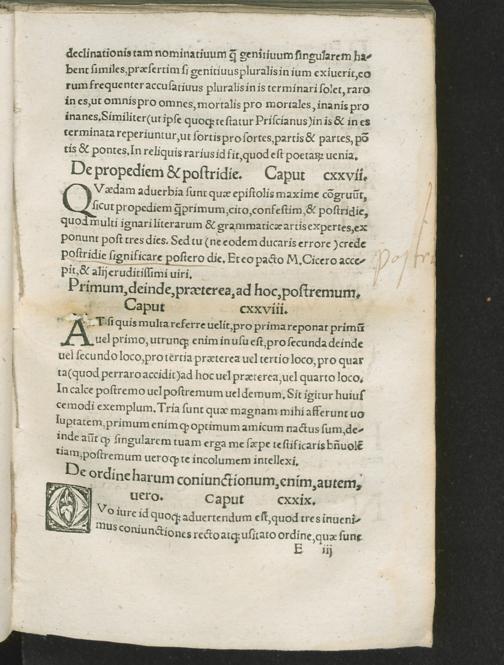 declinationis tam nominatiuum q̃ genitiuum singularem ha-
bent similes, præsertim si genitiuus pluralis in ium exiuerit, eo
rum frequenter accusatiuus pluralis in is terminari solet, raro
in es, ut omnis pro omnes, mortalis pro mortales, inanis pro
inanes. Similiter (ut ipse quoq; testatur Priscianus) in is & in es
terminata reperiuntur, ut sortis pro sortes, partis & partes, põ
tis & pontes. In reliquis rarius id fit, quod est poetaꝝ uenia.
De propediem & postridie. Caput cxxvii.
QVædam aduerbia sunt quæ epistolis maxime cõgruũt,
sicut propediem q̃primum, cito, confestim, & postridie,
quod multi ignari literarum & grammaticæ artis expertes, ex
ponunt post tres dies. Sed tu (ne eodem ducaris errore) crede
postridie significare postero die. Et eo pacto M. Cicero acce-
pit, & alij eruditissimi uiri.
postri
Primum, deinde, præterea, ad hoc, postremum.
Caput cxxviii.
AT si quis multa referre uelit, pro prima reponat primũ
uel primo, utrunq; enim in usu est, pro secunda deinde
uel secundo loco, pro tertia præterea uel tertio loco, pro quar
ta (quod perraro accidit) ad hoc uel præterea, uel quarto loco.
In calce postremo uel postremum uel demum. Sit igitur huius
cemodi exemplum. Tria sunt quæ magnam mihi afferunt uo
luptatem, primum enim ꝙ optimum amicum nactus sum, de-
inde aũt ꝙ singularem tuam erga me sæpe testificaris bñuolẽ
tiam, postremum uero ꝙ te incolumem intellexi.
De ordine harum coniunctionum, enim, autem,
uero. Caput cxxix.
QVo iure id quoq; aduertendum est, quod tres inueni-
mus coniunctiones recto atq; usitato ordine, quæ sunt
E iij